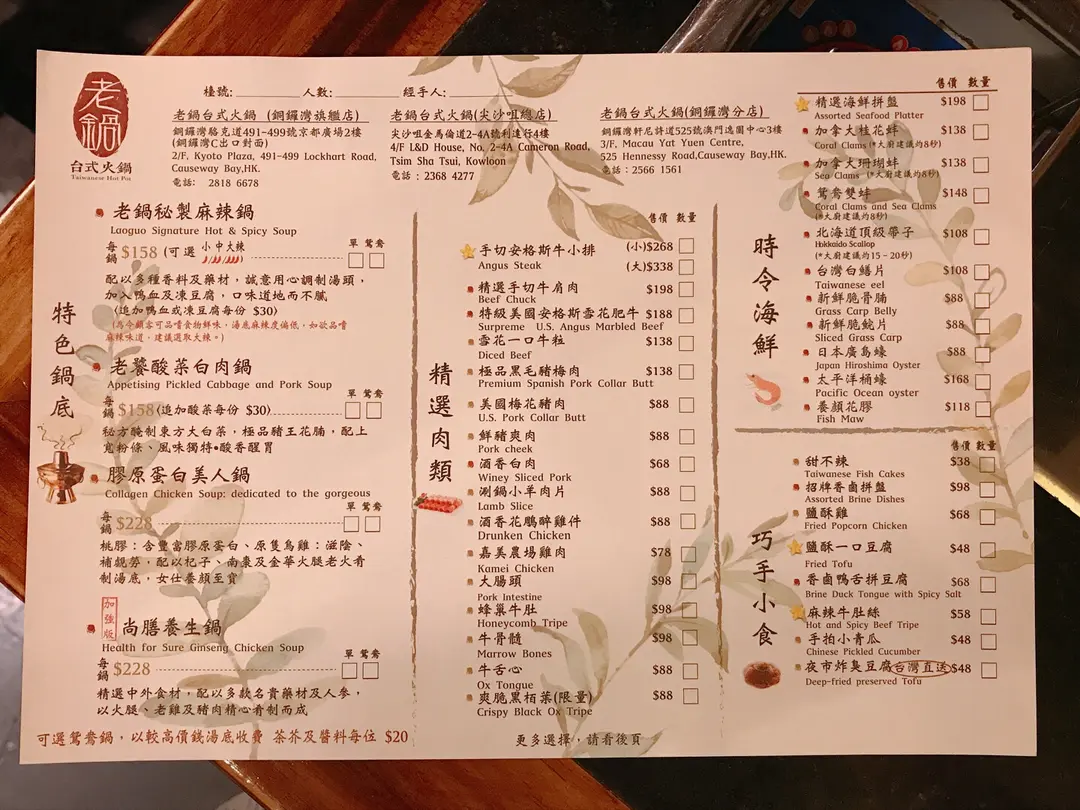 老鍋
台式火鍋
Taiwanese Hot Pot
檯號: 人數: 經手人:
老鍋台式火鍋 (銅鑼灣旗艦店)
銅鑼灣駱克道491-499號京都廣場2樓
(銅鑼灣C出口對面)
2/F, Kyoto Plaza, 491-499 Lockhart Road,
Causeway Bay,HK.
電話: 2818 6678
老鍋台式火鍋(尖沙咀總店)
尖沙咀金馬倫道2-4A號利達行4樓
4/F L&D House, No. 2-4A Cameron Road,
Tsim Sha Tsui, Kowloon
電話：2368 4277
老鍋台式火鍋(銅鑼灣分店)
銅鑼灣軒尼詩道525號澳門逸園中心3樓
3/F, Macau Yat Yuen Centre,
525 Hennessy Road,Causeway Bay,HK.
電話：2566 1561
特色鍋底
老鍋秘製麻辣鍋
Laoguo Signature Hot & Spicy Soup
單 鴛鴦
每鍋 $158 (可選 小中大辣
配以多種香料及藥材，誠意用心調制湯頭，
加入鴨血及凍豆腐，口味道地而不膩
(追加鴨血或凍豆腐每份 $30)
(為令顧客可品嚐食物鮮味，湯底麻辣度偏低，如欲品嚐
麻辣味道，建議選取大辣。)
老饕酸菜白肉鍋
Appetising Pickled Cabbage and Pork Soup
單 鴛鴦
每鍋 $158(追加酸菜每份 $30)
秘方醃制東方大白菜，極品豬王花腩，配上
寬粉條、風味獨特，酸香醒胃
膠原蛋白美人鍋
Collagen Chicken Soup: dedicated to the gorgeous
單 鴛鴦
每鍋 $228
桃膠：含豐富膠原蛋白、原隻烏雞：滋陰、
補親勞，配以杞子、南棗及金華火腿老火肴
制湯底，女仕養顏至寶
加強版
尚膳養生鍋
Health for Sure Ginseng Chicken Soup
單 鴛鴦
每鍋 $228
精選中外食材，配以多款名貴藥材及人參，
以火腿、老雞及豬肉精心肴制而成
可選鴛鴦鍋，以較高價錢湯底收費 茶芥及醬料每位 $20
精選肉類
售價 數量
手切安格斯牛小排 (小)$268
Angus Steak (大)$338
精選手切牛肩肉 $198
Beef Chuck
特級美國安格斯雪花肥牛 $188
Surpreme U.S. Angus Marbled Beef
雪花一口牛粒 $138
Diced Beef
極品黑毛豬梅肉 $138
Premium Spanish Pork Collar Butt
美國梅花豬肉 $88
U.S. Pork Collar Butt
鮮豬爽肉 $88
Pork cheek
酒香白肉 $68
Winey Sliced Pork
涮鍋小羊肉片 $88
Lamb Slice
酒香花鵰醉雞件 $88
Drunken Chicken
嘉美農場雞肉 $78
Kamei Chicken
大腸頭 $98
Pork Intestine
蜂巢牛肚 $98
Honeycomb Tripe
牛骨髓 $98
Marrow Bones
牛舌心 $88
Ox Tongue
爽脆黑栢葉(限量) $88
Crispy Black Ox Tripe
更多選擇，請看後頁
時令海鮮
售價 數量
精選海鮮拼盤 $198
Assorted Seafood Platter
加拿大桂花蚌 $138
Coral Clams (*大廚建議約8秒)
加拿大珊瑚蚌 $138
Sea Clams (*大廚建議約8秒)
鴛鴦雙蚌 $148
Coral Clams and Sea Clams
(*大廚建議約8秒)
北海道頂級帶子 $108
Hokkaido Scallop
(*大廚建議約15-20秒)
台灣白鱔片 $108
Taiwanese eel
新鮮脆骨腩 $88
Grass Carp Belly
新鮮脆鯇片 $88
Sliced Grass Carp
日本廣島蠔 $88
Japan Hiroshima Oyster
太平洋桶蠔 $168
Pacific Ocean oyster
養顏花膠 $118
Fish Maw
巧手小食
售價 數量
甜不辣 $38
Taiwanese Fish Cakes
招牌香鹵拼盤 $98
Assorted Brine Dishes
鹽酥雞 $68
Fried Popcorn Chicken
鹽酥一口豆腐 $48
Fried Tofu
香鹵鴨舌拼豆腐 $68
Brine Duck Tongue with Spicy Salt
麻辣牛肚絲 $58
Hot and Spicy Beef Tripe
手拍小青瓜 $48
Chinese Pickled Cucumber
夜市炸臭豆腐 台灣直送 $48
Deep-fried preserved Tofu